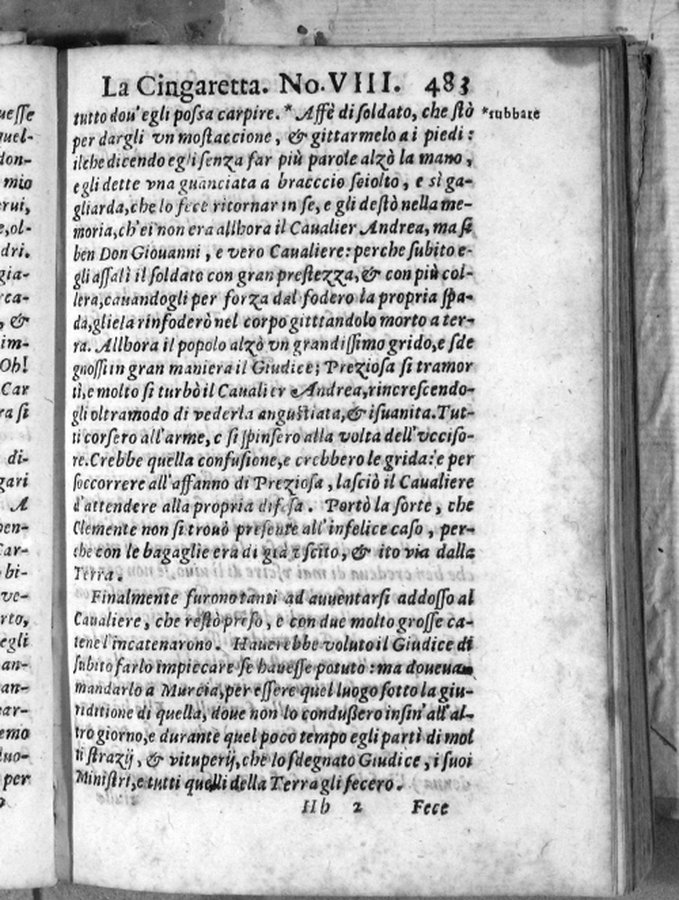 uesse
quel-
don-
mio
erui,
e, ol-
dri.
gia-
rca-
, &
im-
Oh!
Car
ra si
di-
gari
A
pen-
Car-
bi-
ve-
rto,
egli
an-
an-
car-
emo
duo-
per
La Cingaretta. No. VIII. 483
tutto dou' egli possa carpire. * Affè di soldato, che stò
*rubbare
per dargli vn mostaccione, & gittarmelo a i piedi:
ilche dicendo egli senza far più parole alzò la mano,
e gli dette vna guanciata a bracccio sciolto, e sì ga-
gliarda, che lo fece ritornar in se, e gli destò nella me-
moria, ch'ei non era allhora il Caualier Andrea, ma si
ben Don Giouanni, e vero Caualiere: perche subito e-
gli assalì il soldato con gran prestezza, & con più col-
lera, cauandogli per forza dal fodero la propria spa-
da, gliela rinfoderò nel corpo gitttandolo morto a ter-
ra. Allhora il popolo alzò vn grandissimo grido, e sde
gnossi in gran maniera il Giudice; Preziosa si tramor
tì, e molto si turbò il Caualier Andrea, rincrescendo-
gli oltramodo di vederla angustiata, & isuanita. Tut-
ti corsero all'arme, e si spinsero alla volta dell'vcciso-
re. Crebbe quella confusione, e crebbero le grida: e per
soccorrere all'affanno di Preziosa, lasciò il Caualiere
d'attendere alla propria difesa. Portò la sorte, che
Clemente non si trouò presente all'infelice caso, per-
che con le bagaglie era di già vscito, & ito via dalla
Terra.
Finalmente furono tanti ad auuentarsi addosso al
Caualiere, che restò preso, e con due molto grosse ca-
tene l'incatenarono. Hauerebbe voluto il Giudice di
subito farlo impiccare se hauesse potuto: ma doueua
mandarlo a Murcia, per essere quel luogo sotto la giu-
riditione di quella, doue non lo condußero insin'all'al-
tro giorno, e durante quel poco tempo egli partì di mol
ti strazij, & vituperij, che lo sdegnato Giudice, i suoi
Ministri, e tutti quelli della Terra gli fecero.
Hh 2 Fece